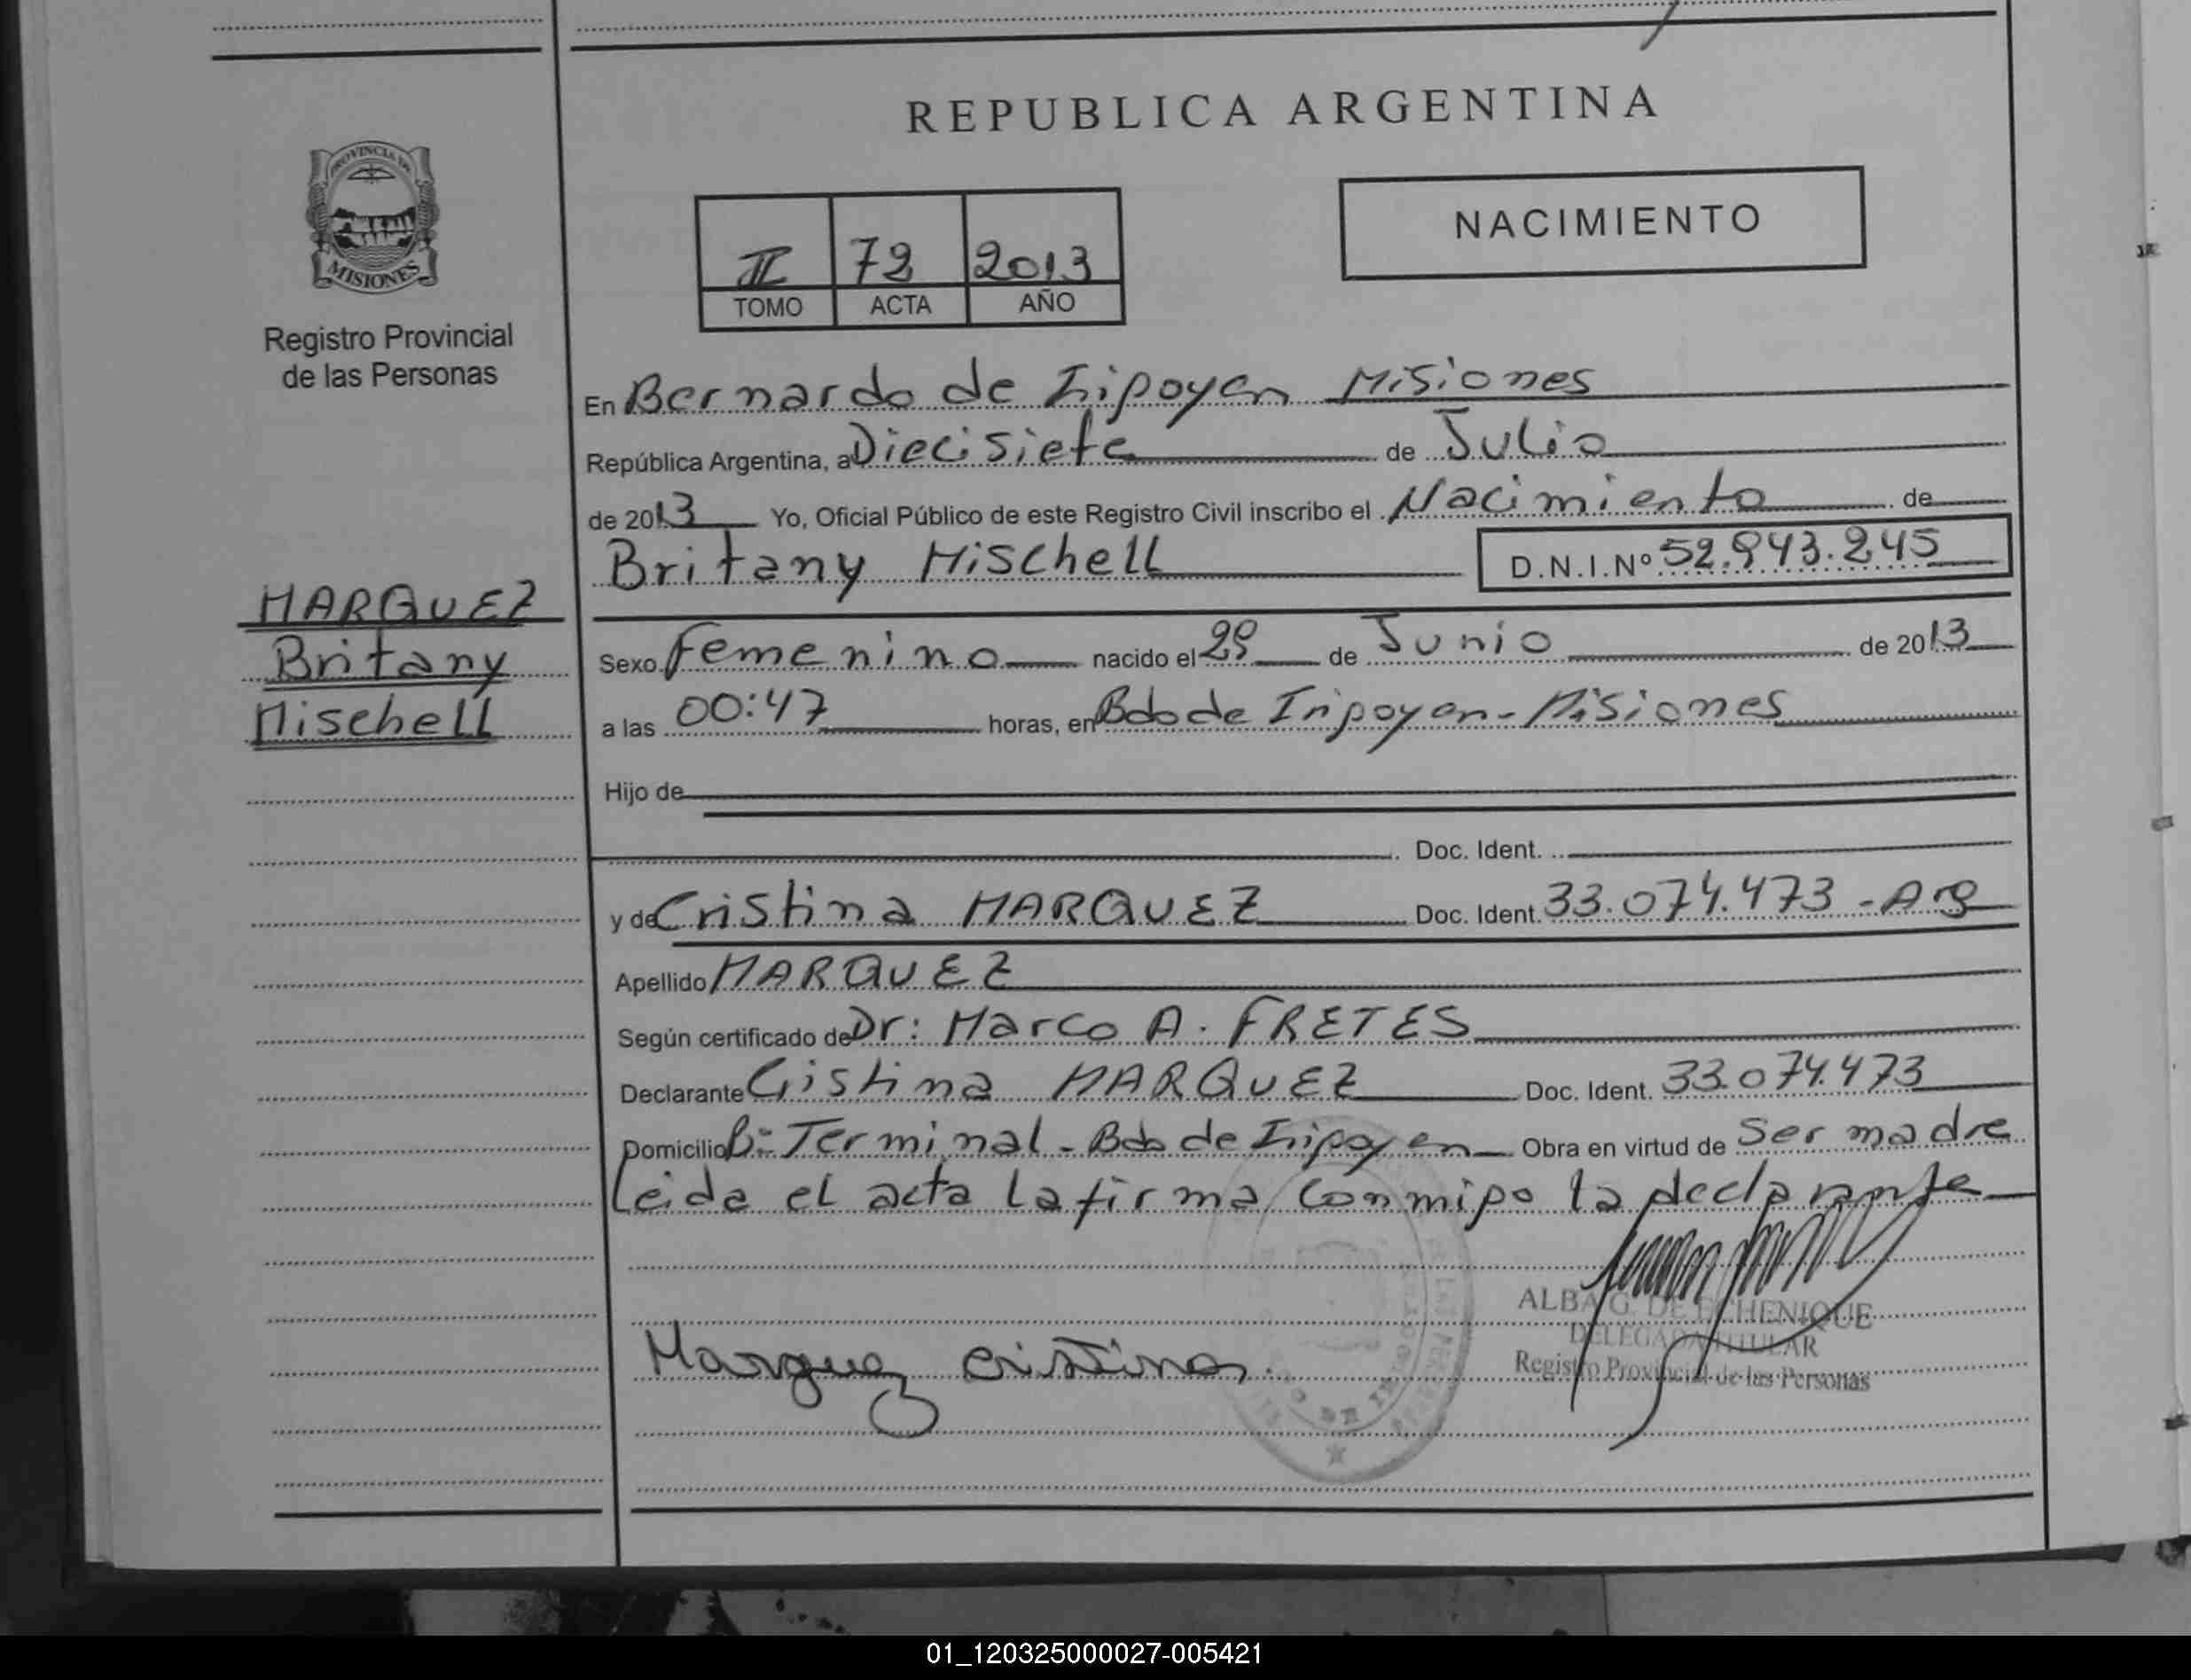 REPUBLICA ARGENTINA
PROVINCIA DE
MISIONES
Registro Provincial
de las Personas
II 72 2013
TOMO ACTA AÑO
NACIMIENTO
En Bernardo de Iripoyen Misiones
República Argentina, a Diecisiete de Julio
de 2013 Yo, Oficial Público de este Registro Civil inscribo el Nacimiento de
Britany Mischell D.N.I.Nº 52.943.245
MARQUEZ
Britany
Mischell
Sexo Femenino nacido el de Junio de 2013
a las 00:47 horas, en Bdo de Iripoyen - Misiones
Hijo de
Doc. Ident.
y de Cristina MARQUEZ Doc. Ident. 33.074.473 - Arg
Apellido MARQUEZ
Según certificado de Dr: Marco A. FRETES
Declarante Cristina MARQUEZ Doc. Ident. 33.074.473
Domicilio Bº Terminal - Bdo de Iripoyen Obra en virtud de Ser madre
Leida el acta la firma conmigo la declarante
ALBA G. DE ECHENIQUE
DELEGADA TITULAR
Registro Provincial de las Personas
Marquez Cristina.
01_120325000027-005421